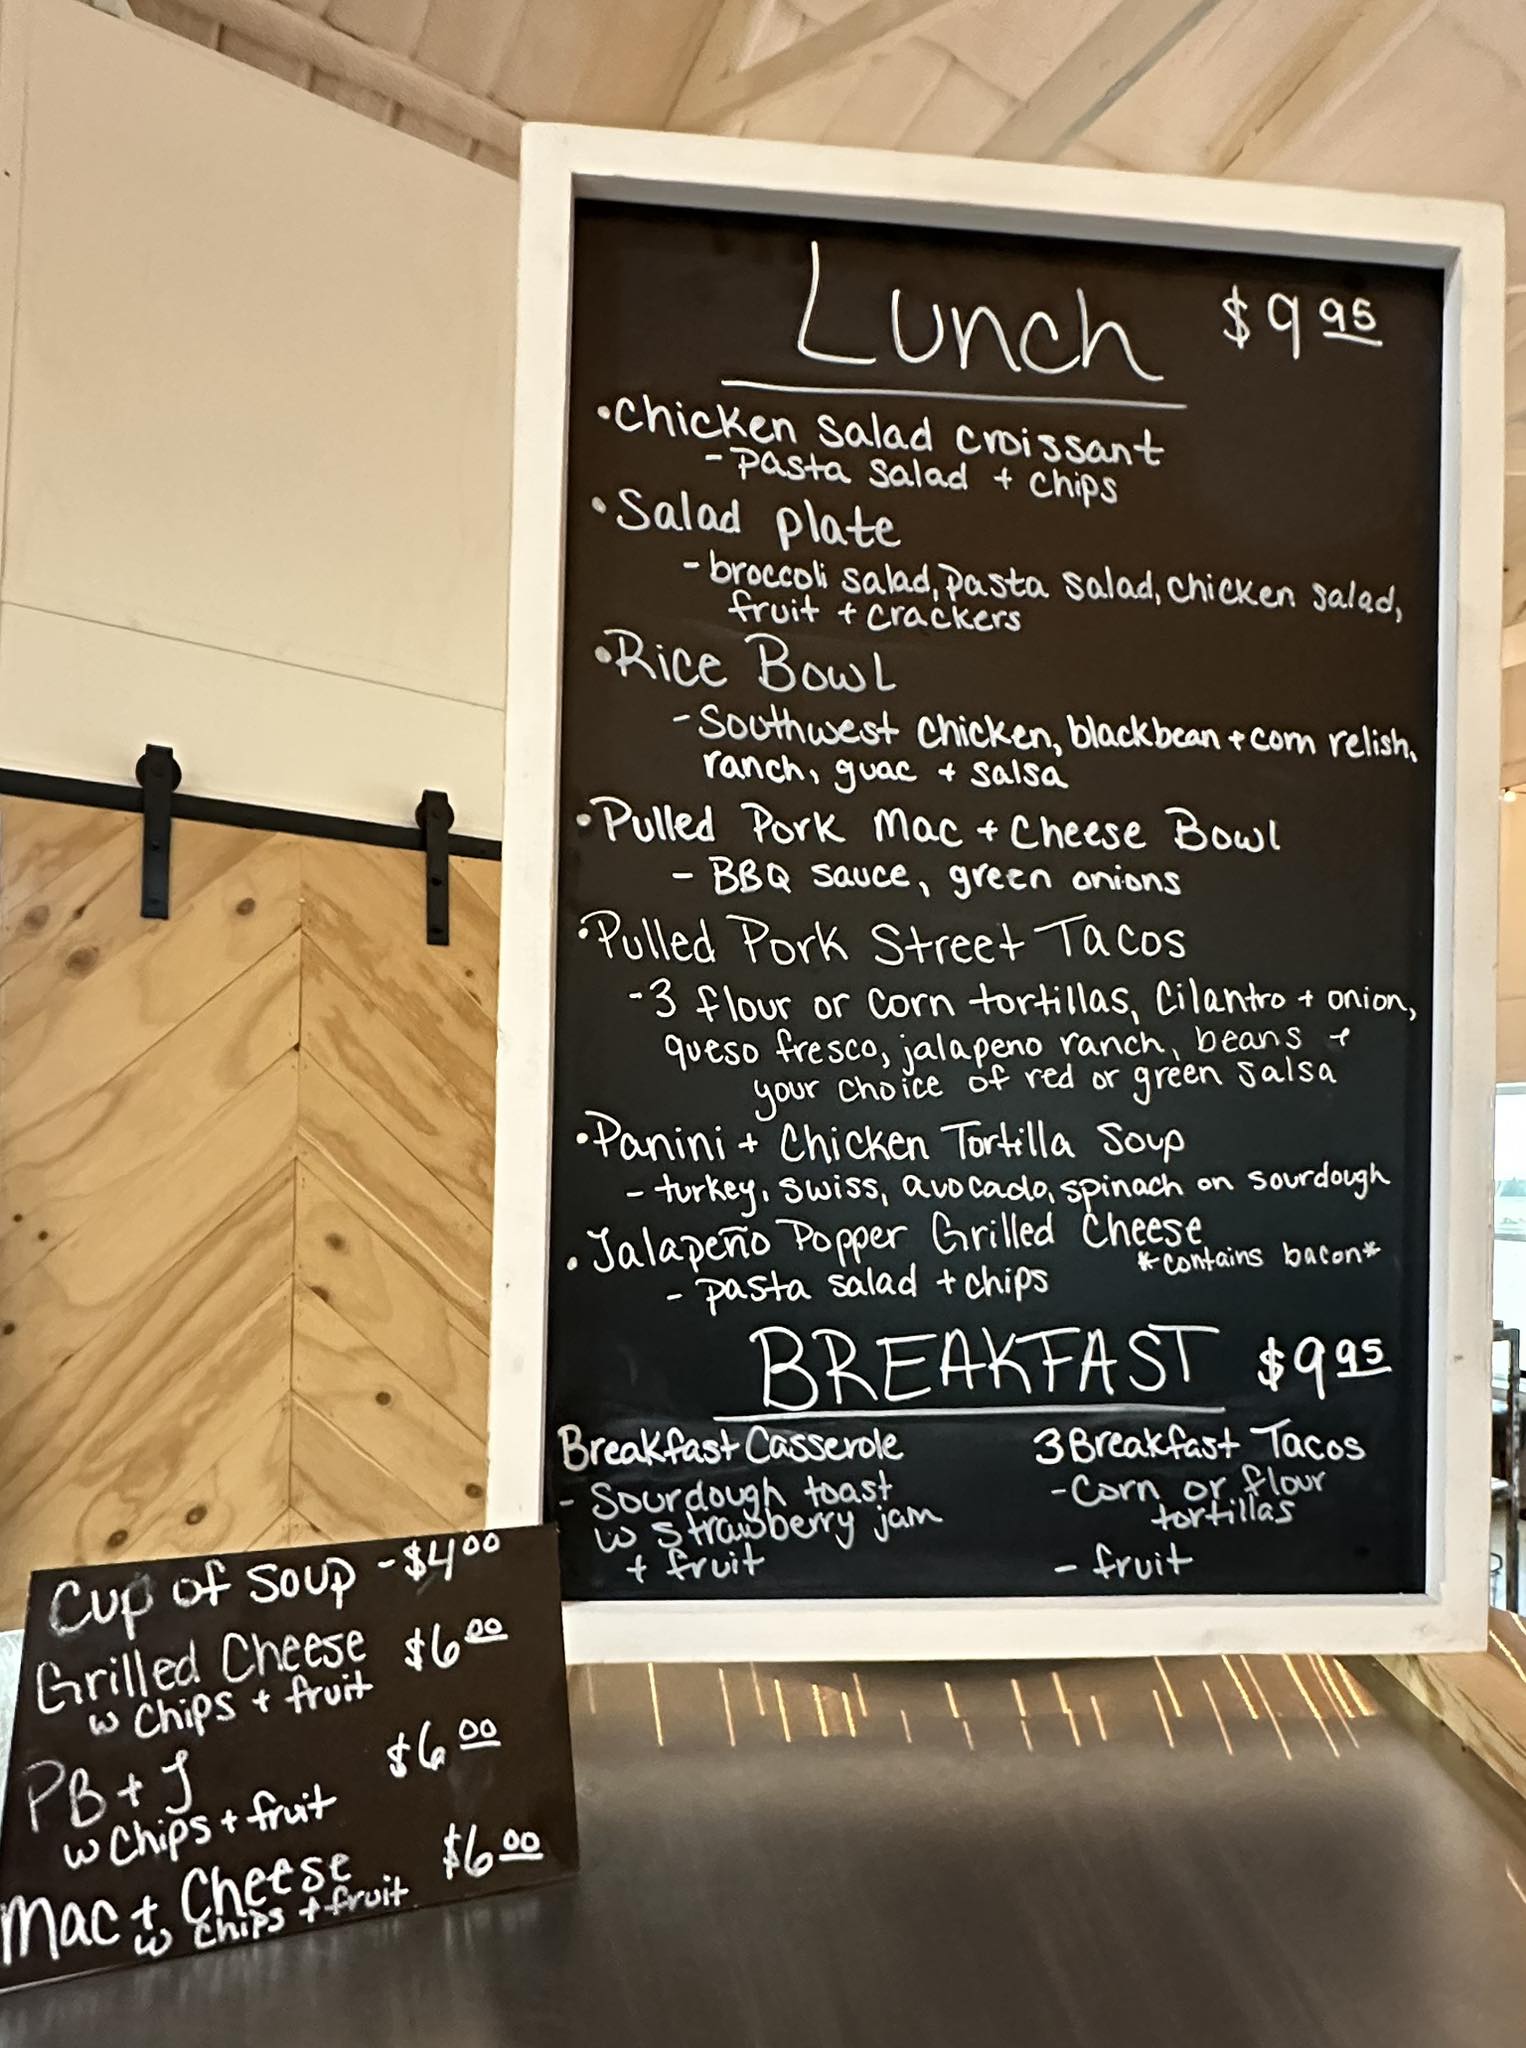 Lunch $9.95
•Chicken Salad Croissant
-pasta salad + chips
•Salad plate
-broccoli salad, pasta salad, chicken salad,
fruit + crackers
•Rice Bowl
-Southwest chicken, blackbean + corn relish,
ranch, guac + salsa
•Pulled Pork Mac + Cheese Bowl
- BBQ sauce, green onions
•Pulled Pork Street Tacos
-3 flour or corn tortillas, cilantro + onion,
queso fresco, jalapeno ranch, beans +
your choice of red or green salsa
•Panini + Chicken Tortilla Soup
- turkey, swiss, avocado, spinach on sourdough
•Jalapeño Popper Grilled Cheese
*contains bacon*
- pasta salad + chips
BREAKFAST $9.95
Breakfast Casserole
- Sourdough toast
w strawberry jam
+ fruit
3 Breakfast Tacos
-Corn or flour
tortillas
- fruit
Cup of Soup - $4.00
Grilled Cheese $6.00
w chips + fruit
PB + J $6.00
w chips + fruit
Mac + Cheese $6.00
w chips + fruit